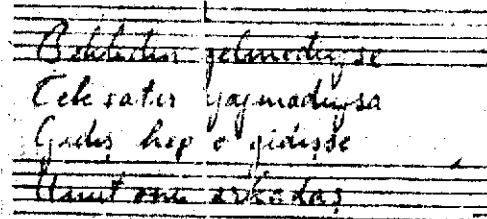 Bekledin gelmediyse
Tek satır yazmadıysa
Gidiş hep o gidişse
Unut onu arkadaş